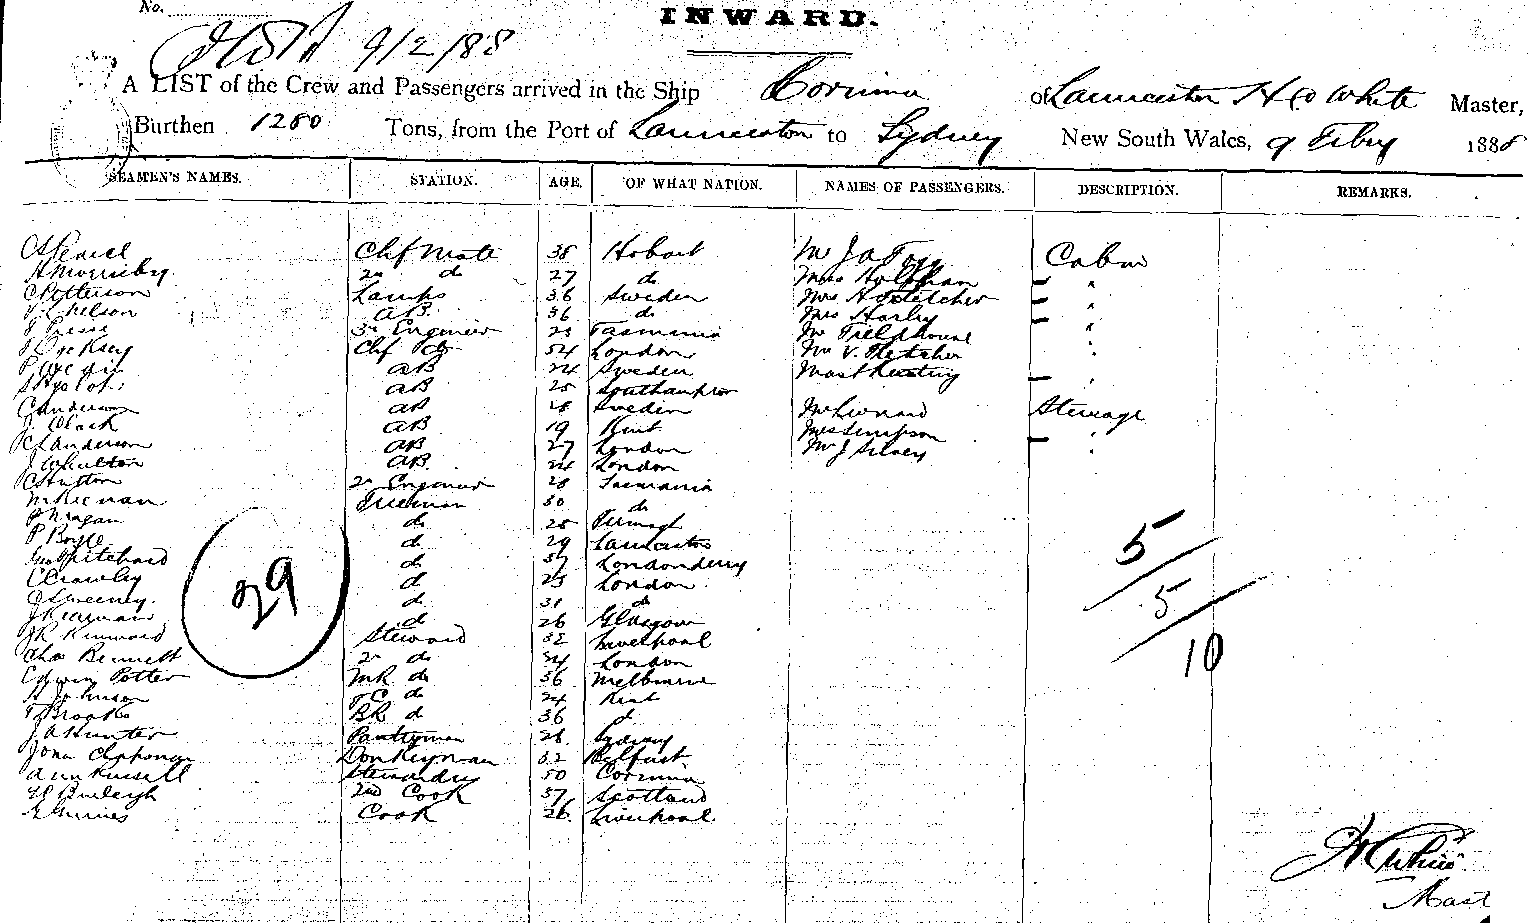 INWARD.
No.
9/2/88
A LIST of the Crew and Passengers arrived in the Ship Corinna of Launceston H White Master,
Burthen 1280 Tons, from the Port of Launceston to Sydney New South Wales, 9 Feby 1888
SEAMEN'S NAMES. STATION. AGE. OF WHAT NATION. NAMES OF PASSENGERS. DESCRIPTION. REMARKS.
Chf Mate 38 Hobart Mr J A Cabin
2n d 27 do Mrs
C Petterson Lamps 36 Sweden Mrs H Fletcher "
Nelson AB 36 do Mrs Harley "
3rd Engineer 23 Tasmania Mr Fieldhouse "
Chf do 54 London Mr V. Fletcher "
AB 24 Sweden Mast Keating "
AB 25 Southampton
C Anderson AB 18 Sweden Mr Leonard Steerage
J. Clark AB 19 Kent Mrs Simpson "
C Anderson AB 27 London Mr J Silvey "
J Whutton AB 24 London
C Hutton 2n Engineer 28 Tasmania
M Kiernan Fireman 30 do
P d 25
P Boyle d 29 Lancaster
Geo Pritchard d 37 Londonderry
C Crowley d 23 London
J Sweeney d 31 d
d 26 Glasgow
J R Kinnaird Steward 32 Liverpool
Chas Bennett 2n do 24 London
Edwin Potter MR do 36 Melbourne
H Johnson do 24 Kent
T Brooks BR d 36 d
J A Hunter Pantryman 26 Sydney
John Donkeyman 32 Belfast
Ann Russell Stewardess 50 Corinna
Burleigh 2nd Cook 37 Scotland
Cook 26 Liverpool
29
5
5
10
H White
Mast